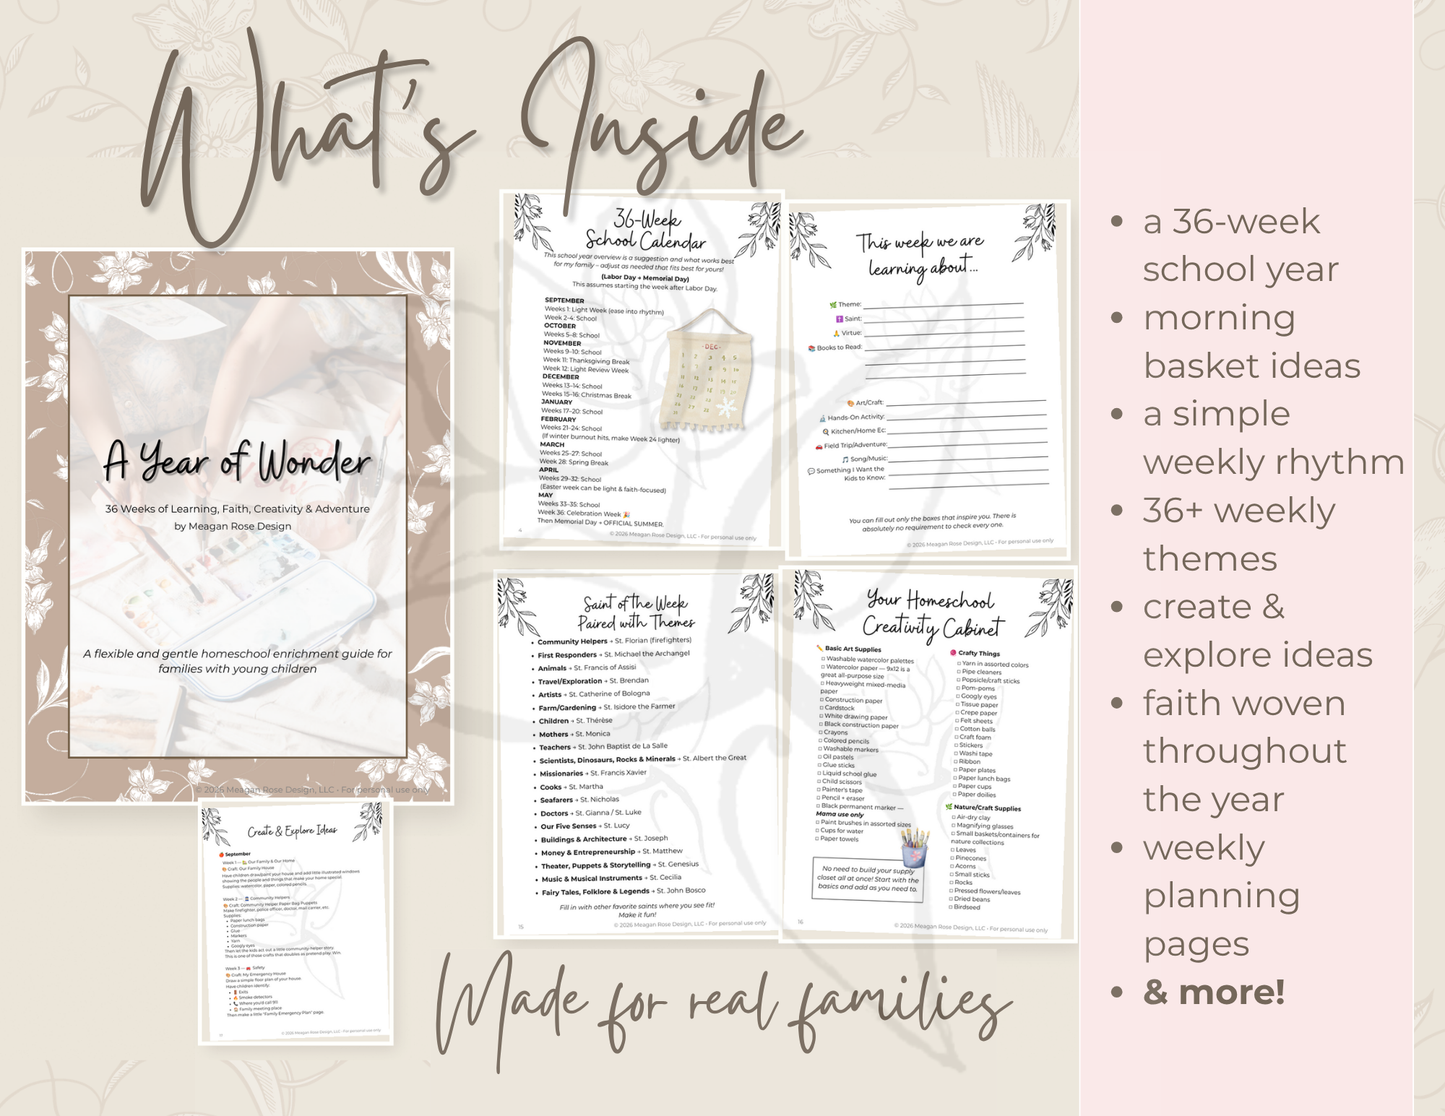 What's Inside
A Year of Wonder
36 Weeks of Learning, Faith, Creativity & Adventure
by Meagan Rose Design
A flexible and gentle homeschool enrichment guide for
families with young children
© 2026 Meagan Rose Design, LLC - For personal use only
36-Week
School Calendar
This school year overview is a suggestion and what works best
for my family – adjust as needed that fits best for yours!
(Labor Day → Memorial Day)
This assumes starting the week after Labor Day.
SEPTEMBER
Weeks 1: Light Week (ease into rhythm)
Week 2-4: School
OCTOBER
Weeks 5-8: School
NOVEMBER
Weeks 9-10: School
Week 11: Thanksgiving Break
Week 12: Light Review Week
DECEMBER
Weeks 13-14: School
Weeks 15-16: Christmas Break
JANUARY
Weeks 17-20: School
FEBRUARY
Weeks 21-24: School
(If winter burnout hits, make Week 24 lighter)
MARCH
Weeks 25-27: School
Week 28: Spring Break
APRIL
Weeks 29-32: School
(Easter week can be light & faith-focused)
MAY
Weeks 33-35: School
Week 36: Celebration Week 🎉
Then Memorial Day = OFFICIAL SUMMER.
DEC
4
© 2026 Meagan Rose Design, LLC - For personal use only
This week we are
learning about...
🌿 Theme:
✝️ Saint:
🙏 Virtue:
📚 Books to Read:
🎨 Art/Craft:
🔬 Hands-On Activity:
🍳 Kitchen/Home Ec:
🚗 Field Trip/Adventure:
🎵 Song/Music:
💬 Something I Want the
Kids to Know:
You can fill out only the boxes that inspire you. There is
absolutely no requirement to check every one.
© 2026 Meagan Rose Design, LLC - For personal use only
Saint of the Week
Paired with Themes
• Community Helpers → St. Florian (firefighters)
• First Responders → St. Michael the Archangel
• Animals → St. Francis of Assisi
• Travel/Exploration → St. Brendan
• Artists → St. Catherine of Bologna
• Farm/Gardening → St. Isidore the Farmer
• Children → St. Thérèse
• Mothers → St. Monica
• Teachers → St. John Baptist de La Salle
• Scientists, Dinosaurs, Rocks & Minerals → St. Albert the Great
• Missionaries → St. Francis Xavier
• Cooks → St. Martha
• Seafarers → St. Nicholas
• Doctors → St. Gianna / St. Luke
• Our Five Senses → St. Lucy
• Buildings & Architecture → St. Joseph
• Money & Entrepreneurship → St. Matthew
• Theater, Puppets & Storytelling → St. Genesius
• Music & Musical Instruments → St. Cecilia
• Fairy Tales, Folklore & Legends → St. John Bosco
Fill in with other favorite saints where you see fit!
Make it fun!
15
© 2026 Meagan Rose Design, LLC - For personal use only
Your Homeschool
Creativity Cabinet
✏️ Basic Art Supplies
□ Washable watercolor palettes
□ Watercolor paper — 9x12 is a
great all-purpose size
□ Heavyweight mixed-media
paper
□ Construction paper
□ Cardstock
□ White drawing paper
□ Black construction paper
□ Crayons
□ Colored pencils
□ Washable markers
□ Oil pastels
□ Glue sticks
□ Liquid school glue
□ Child scissors
□ Painter's tape
□ Pencil + eraser
□ Black permanent marker —
Mama use only
□ Paint brushes in assorted sizes
□ Cups for water
□ Paper towels
No need to build your supply
closet all at once! Start with the
basics and add as you need to.
🧶 Crafty Things
□ Yarn in assorted colors
□ Pipe cleaners
□ Popsicle/craft sticks
□ Pom-poms
□ Googly eyes
□ Tissue paper
□ Crepe paper
□ Felt sheets
□ Cotton balls
□ Craft foam
□ Stickers
□ Washi tape
□ Ribbon
□ Paper plates
□ Paper lunch bags
□ Paper cups
□ Paper doilies
🌿 Nature/Craft Supplies
□ Air-dry clay
□ Magnifying glasses
□ Small baskets/containers for
nature collections
□ Leaves
□ Pinecones
□ Acorns
□ Small sticks
□ Rocks
□ Pressed flowers/leaves
□ Dried beans
□ Birdseed
16
© 2026 Meagan Rose Design, LLC - For personal use only
Create & Explore Ideas
🍎 September
Week 1 — 🏡 Our Family & Our Home
🎨 Craft: Our Family House
Have children draw/paint your house and add little illustrated windows
showing the people and things that make your home special.
Supplies: watercolor, paper, colored pencils.
Week 2 — Community Helpers
🎨 Craft: Community Helper Paper Bag Puppets
Make firefighter, police officer, doctor, mail carrier, etc.
Supplies:
• Paper lunch bags
• Construction paper
• Glue
• Markers
• Yarn
• Googly eyes
Then let the kids act out a little community-helper story.
This is one of those crafts that doubles as pretend play. Win.
Week 3 — 🚒 Safety
🎨 Craft: My Emergency House
Draw a simple floor plan of your house.
Have children identify:
• 🚪 Exits
• 🔥 Smoke detectors
• 📞 Where you'd call 911
• 🏠 Family meeting place
Then make a little "Family Emergency Plan" page.
© 2026 Meagan Rose Design, LLC - For personal use only
Made for real families
• a 36-week
school year
• morning
basket ideas
• a simple
weekly rhythm
• 36+ weekly
themes
• create &
explore ideas
• faith woven
throughout
the year
• weekly
planning
pages
• & more!